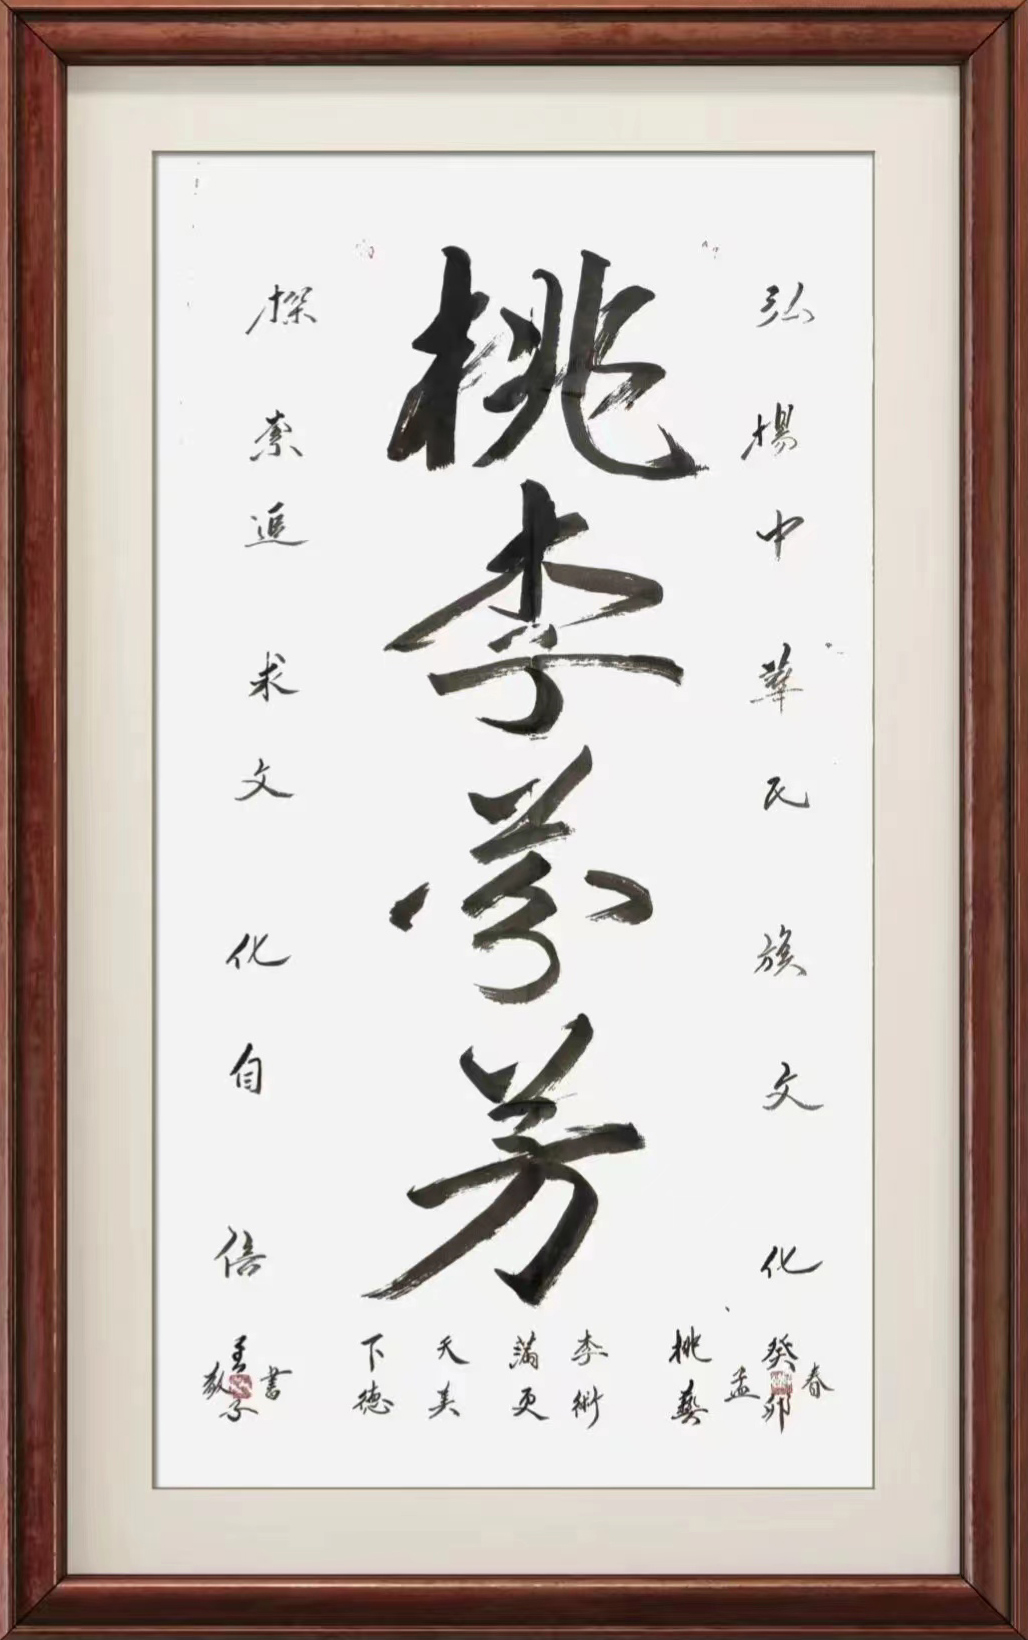 弘揚中華民族文化
癸卯孟春
桃李芬芳
桃李滿天下
藝術更美德
探索追求文化自信
書